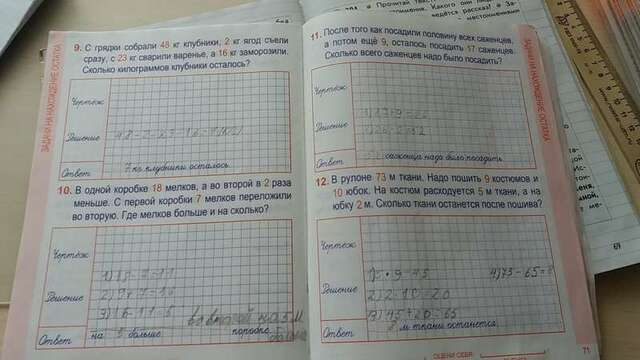 ЗАДАЧИ НА НАХОЖДЕНИЕ ОСТАТКА
9. С грядки собрали 48 кг клубники, 2 кг ягод съели
сразу, с 23 кг сварили варенье, а 16 кг заморозили.
Сколько килограммов клубники осталось?
Чертёж
Решение
48-2-23-16=7(кг)
Ответ
7 кг клубники осталось.
10. В одной коробке 18 мелков, а во второй в 2 раза
меньше. С первой коробки 7 мелков переложили
во вторую. Где мелков больше и на сколько?
Чертёж
1) 18-7=11
Решение
2) 9+7=16
3) 16-11=5
Ответ
на 5 больше
11. После того как посадили половину всех саженцев,
а потом ещё 9, осталось посадить 17 саженцев.
Сколько всего саженцев надо было посадить?
Чертёж
Решение
Ответ
саженца надо было посадить
12. В рулоне 73 м ткани. Надо пошить 9 костюмов и
10 юбок. На костюм расходуется 5 м ткани, а на
юбку 2 м. Сколько ткани останется после пошива?
Чертёж
1) 5•9=45
4) 73-65=8
Решение
2) 2•10=20
3) 45+20=65
Ответ
8 м ткани останется.
ЗАДАЧИ НА НАХОЖДЕНИЕ ОСТАТКА
ОЦЕНИ СЕБЯ
71
69